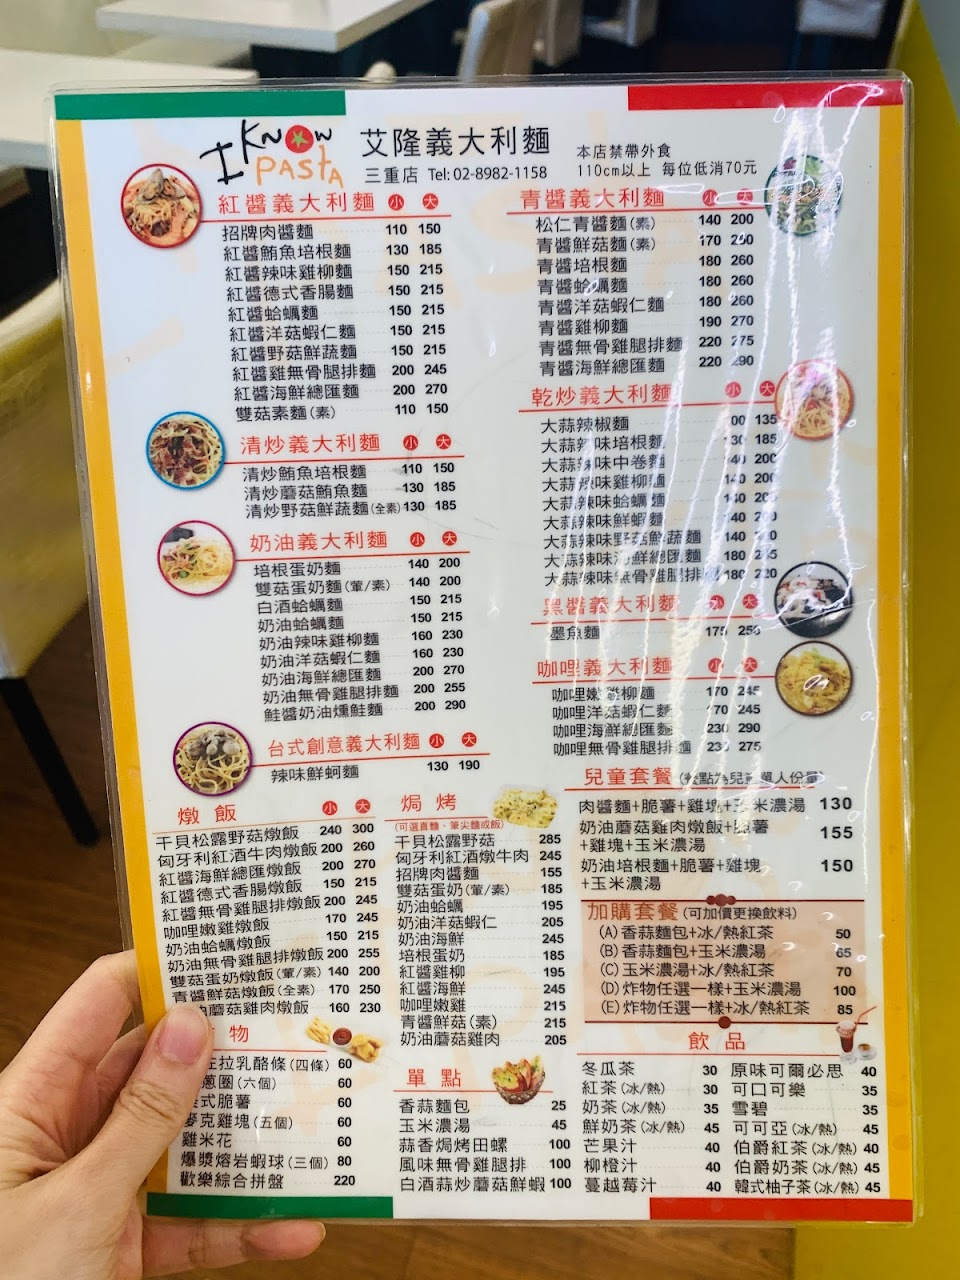 I KNOW PASTA
艾隆義大利麵
三重店 Tel: 02-8982-1158
本店禁帶外食
110cm以上 每位低消70元
紅醬義大利麵 小 大
招牌肉醬麵 110 150
紅醬鮪魚培根麵 130 185
紅醬辣味雞柳麵 150 215
紅醬德式香腸麵 150 215
紅醬蛤蠣麵 150 215
紅醬洋菇蝦仁麵 150 215
紅醬野菇鮮蔬麵 150 215
紅醬雞無骨腿排麵 200 245
紅醬海鮮總匯麵 200 270
雙菇素麵(素) 110 150
清炒義大利麵 小 大
清炒鮪魚培根麵 110 150
清炒蘑菇鮪魚麵 130 185
清炒野菇鮮蔬麵(全素) 130 185
奶油義大利麵 小 大
培根蛋奶麵 140 200
雙菇蛋奶麵(葷/素) 140 200
白酒蛤蠣麵 150 215
奶油蛤蠣麵 150 215
奶油辣味雞柳麵 160 230
奶油洋菇蝦仁麵 160 230
奶油海鮮總匯麵 200 270
奶油無骨雞腿排麵 200 255
鮭醬奶油燻鮭麵 200 290
台式創意義大利麵 小 大
辣味鮮蚵麵 130 190
青醬義大利麵 小 大
松仁青醬麵(素) 140 200
青醬鮮菇麵(素) 170 250
青醬培根麵 180 260
青醬蛤蠣麵 180 260
青醬洋菇蝦仁麵 180 260
青醬雞柳麵 190 270
青醬無骨雞腿排麵 220 275
青醬海鮮總匯麵 220 290
乾炒義大利麵 小 大
大蒜辣椒麵 135
大蒜辣味培根麵 130 185
大蒜辣味中卷麵 140 200
大蒜辣味雞柳麵 140 200
大蒜辣味蛤蠣麵 140 200
大蒜辣味鮮蝦麵
大蒜辣味野菇鮮蔬麵 140
大蒜辣味海鮮總匯麵 180
大蒜辣味無骨雞腿排 180 220
黑醬義大利麵 小 大
墨魚麵 175 250
咖哩義大利麵 小 大
咖哩嫩雞柳麵 170 245
咖哩洋菇蝦仁麵 170 245
咖哩海鮮總匯麵 230 290
咖哩無骨雞腿排麵 230 275
兒童套餐 (餐點為兒童單人份量)
肉醬麵+脆薯+雞塊+玉米濃湯 130
奶油蘑菇雞肉燉飯+脆薯
+雞塊+玉米濃湯 155
奶油培根麵+脆薯+雞塊
+玉米濃湯 150
加購套餐 (可加價更換飲料)
(A) 香蒜麵包+冰/熱紅茶 50
(B) 香蒜麵包+玉米濃湯 65
(C) 玉米濃湯+冰/熱紅茶 70
(D) 炸物任選一樣+玉米濃湯 100
(E) 炸物任選一樣+冰/熱紅茶 85
燉飯 小 大
干貝松露野菇燉飯 240 300
匈牙利紅酒牛肉燉飯 200 260
紅醬海鮮總匯燉飯 200 270
紅醬德式香腸燉飯 150 215
紅醬無骨雞腿排燉飯 200 245
咖哩嫩雞燉飯 170 245
奶油蛤蠣燉飯 150 215
奶油無骨雞腿排燉飯 200 255
雙菇蛋奶燉飯(葷/素) 140 200
青醬鮮菇燉飯(全素) 170 250
油蘑菇雞肉燉飯 160 230
焗烤
(可選直麵、筆尖麵或飯)
干貝松露野菇 285
匈牙利紅酒燉牛肉 245
招牌肉醬麵 155
雙菇蛋奶(葷/素) 185
奶油蛤蠣 195
奶油洋菇蝦仁 205
奶油海鮮 245
培根蛋奶 185
紅醬雞柳 195
紅醬海鮮 245
咖哩嫩雞 215
青醬鮮菇(素) 215
奶油蘑菇雞肉 205
物
拉乳酪條(四條) 60
蔥圈(六個) 60
式脆薯 60
麥克雞塊(五個) 60
雞米花 60
爆漿熔岩蝦球(三個) 80
歡樂綜合拼盤 220
單點
香蒜麵包 25
玉米濃湯 45
蒜香焗烤田螺 100
風味無骨雞腿排 100
白酒蒜炒蘑菇鮮蝦 100
飲品
冬瓜茶 30
紅茶(冰/熱) 30
奶茶(冰/熱) 35
鮮奶茶(冰/熱) 45
芒果汁 40
柳橙汁 40
蔓越莓汁 40
原味可爾必思 40
可口可樂 35
雪碧 35
可可亞(冰/熱) 45
伯爵紅茶(冰/熱) 40
伯爵奶茶(冰/熱) 45
韓式柚子茶(冰/熱) 45